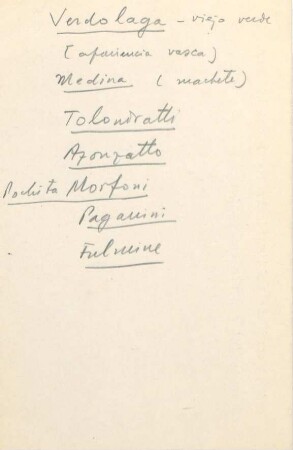 Verdolaga - viejo verde
(apariencia vasca)
Medina (machete)
Tolondratti
Azonzatto
Pochita Morfoni
Paganini
Fulmine